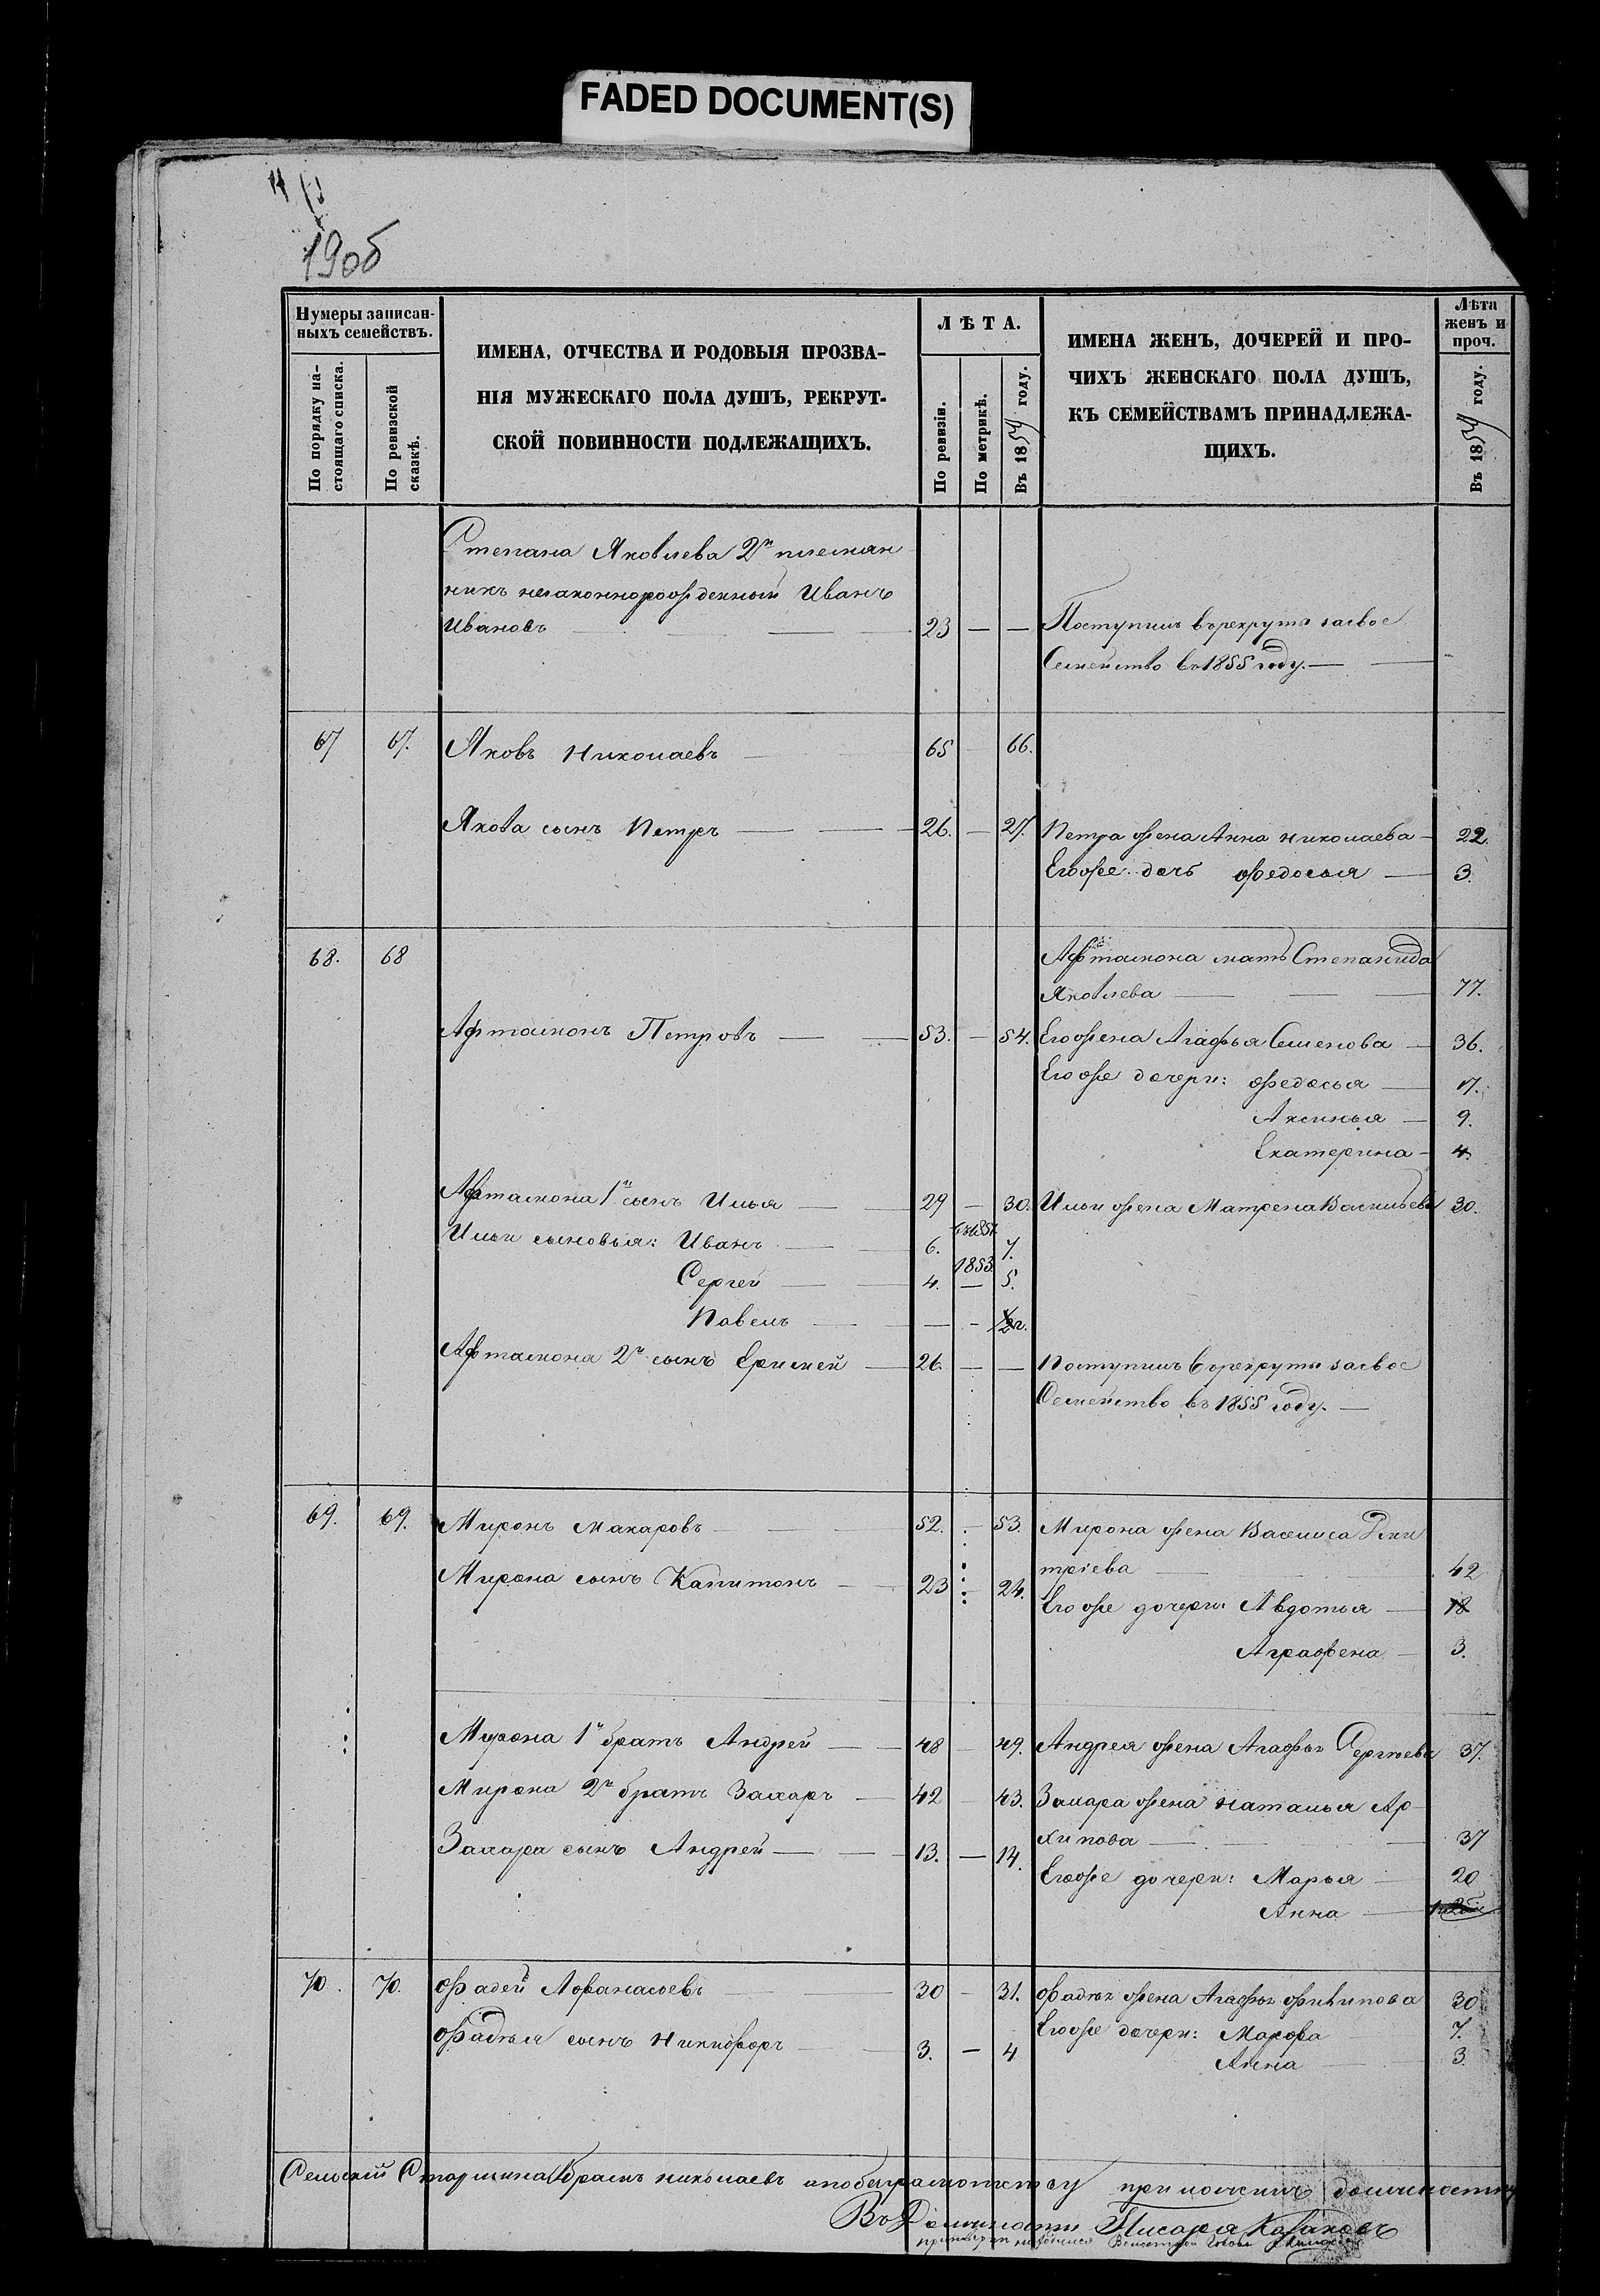 FADED DOCUMENT(S)
190б
Нумеры записан-
ныхъ семействъ.
По порядку на-
стоящаго списка.
По ревизской
сказкѣ.
ИМЕНА, ОТЧЕСТВА И РОДОВЫЯ ПРОЗВА-
НІЯ МУЖЕСКАГО ПОЛА ДУШЪ, РЕКРУТ-
СКОЙ ПОВИННОСТИ ПОДЛЕЖАЩИХЪ.
ЛѢТА.
По ревизіи.
По метрикѣ.
Въ 18 году.
ИМЕНА ЖЕНЪ, ДОЧЕРЕЙ И ПРО-
ЧИХЪ ЖЕНСКАГО ПОЛА ДУШЪ,
КЪ СЕМЕЙСТВАМЪ ПРИНАДЛЕЖА-
ЩИХЪ.
Лѣта
женъ и
проч.
Въ 18 году.
Степана Яковлева 2й племян
никъ незаконнорожденный Иванъ
Ивановъ — 23 — — Поступилъ въ рекруты за свое
Семейство въ 1855 году. —
67 67. Яковъ Николаевъ — 65 — 66.
Якова сынъ Петръ — 26. — 27. Петра жена Анна Николаева — 22.
Его же дочь Федосья — 3.
68. 68 Афтамона мать Степанида
Яковлева — 77.
Афтамонъ Петровъ — 53. — 54. Его жена Агафья Семенова — 36.
Его же дочери: Федосья — 17.
Аксинья — 9.
Екатерина — 4.
Афтамона 1й сынъ Илья — 29 — 30. Ильи жена Матрена Васильева 30.
Ильи сыновья: Иванъ — 6. 7.
Сергей — 4. 1853. 5.
Павелъ — — —
Афтамона 2й сынъ Еримей — 26. — — Поступилъ въ рекруты за свое
Семейство въ 1855 году. —
69. 69. Миронъ Макаровъ — 52. — 53. Мирона жена Василиса Дми
тріева — 42
Мирона сынъ Капитонъ — 23 — 24.
Его же дочери: Авдотья — 18
Аграфена — 3.
Мирона 1й братъ Андрей — 48 — 49. Андрея жена Агафья Сергѣева 37.
Мирона 2й братъ Захаръ — 42 — 43. Захара жена Наталья Ар
хипова — 37
Захара сынъ Андрей — 13. — 14.
Его же дочери: Марья — 20
Анна —
70. 70. Фадей Афанасьевъ — 30 — 31. Фадѣя жена Агафья Филипова 30
Фадѣя сынъ Никифоръ — 3. — 4
Его же дочери: Марфа 7.
Анна — 3
Сельскій Старшина Абрамъ Николаевъ а по безграмотству приложилъ должностную
Въ Должности Писаря Казаковъ